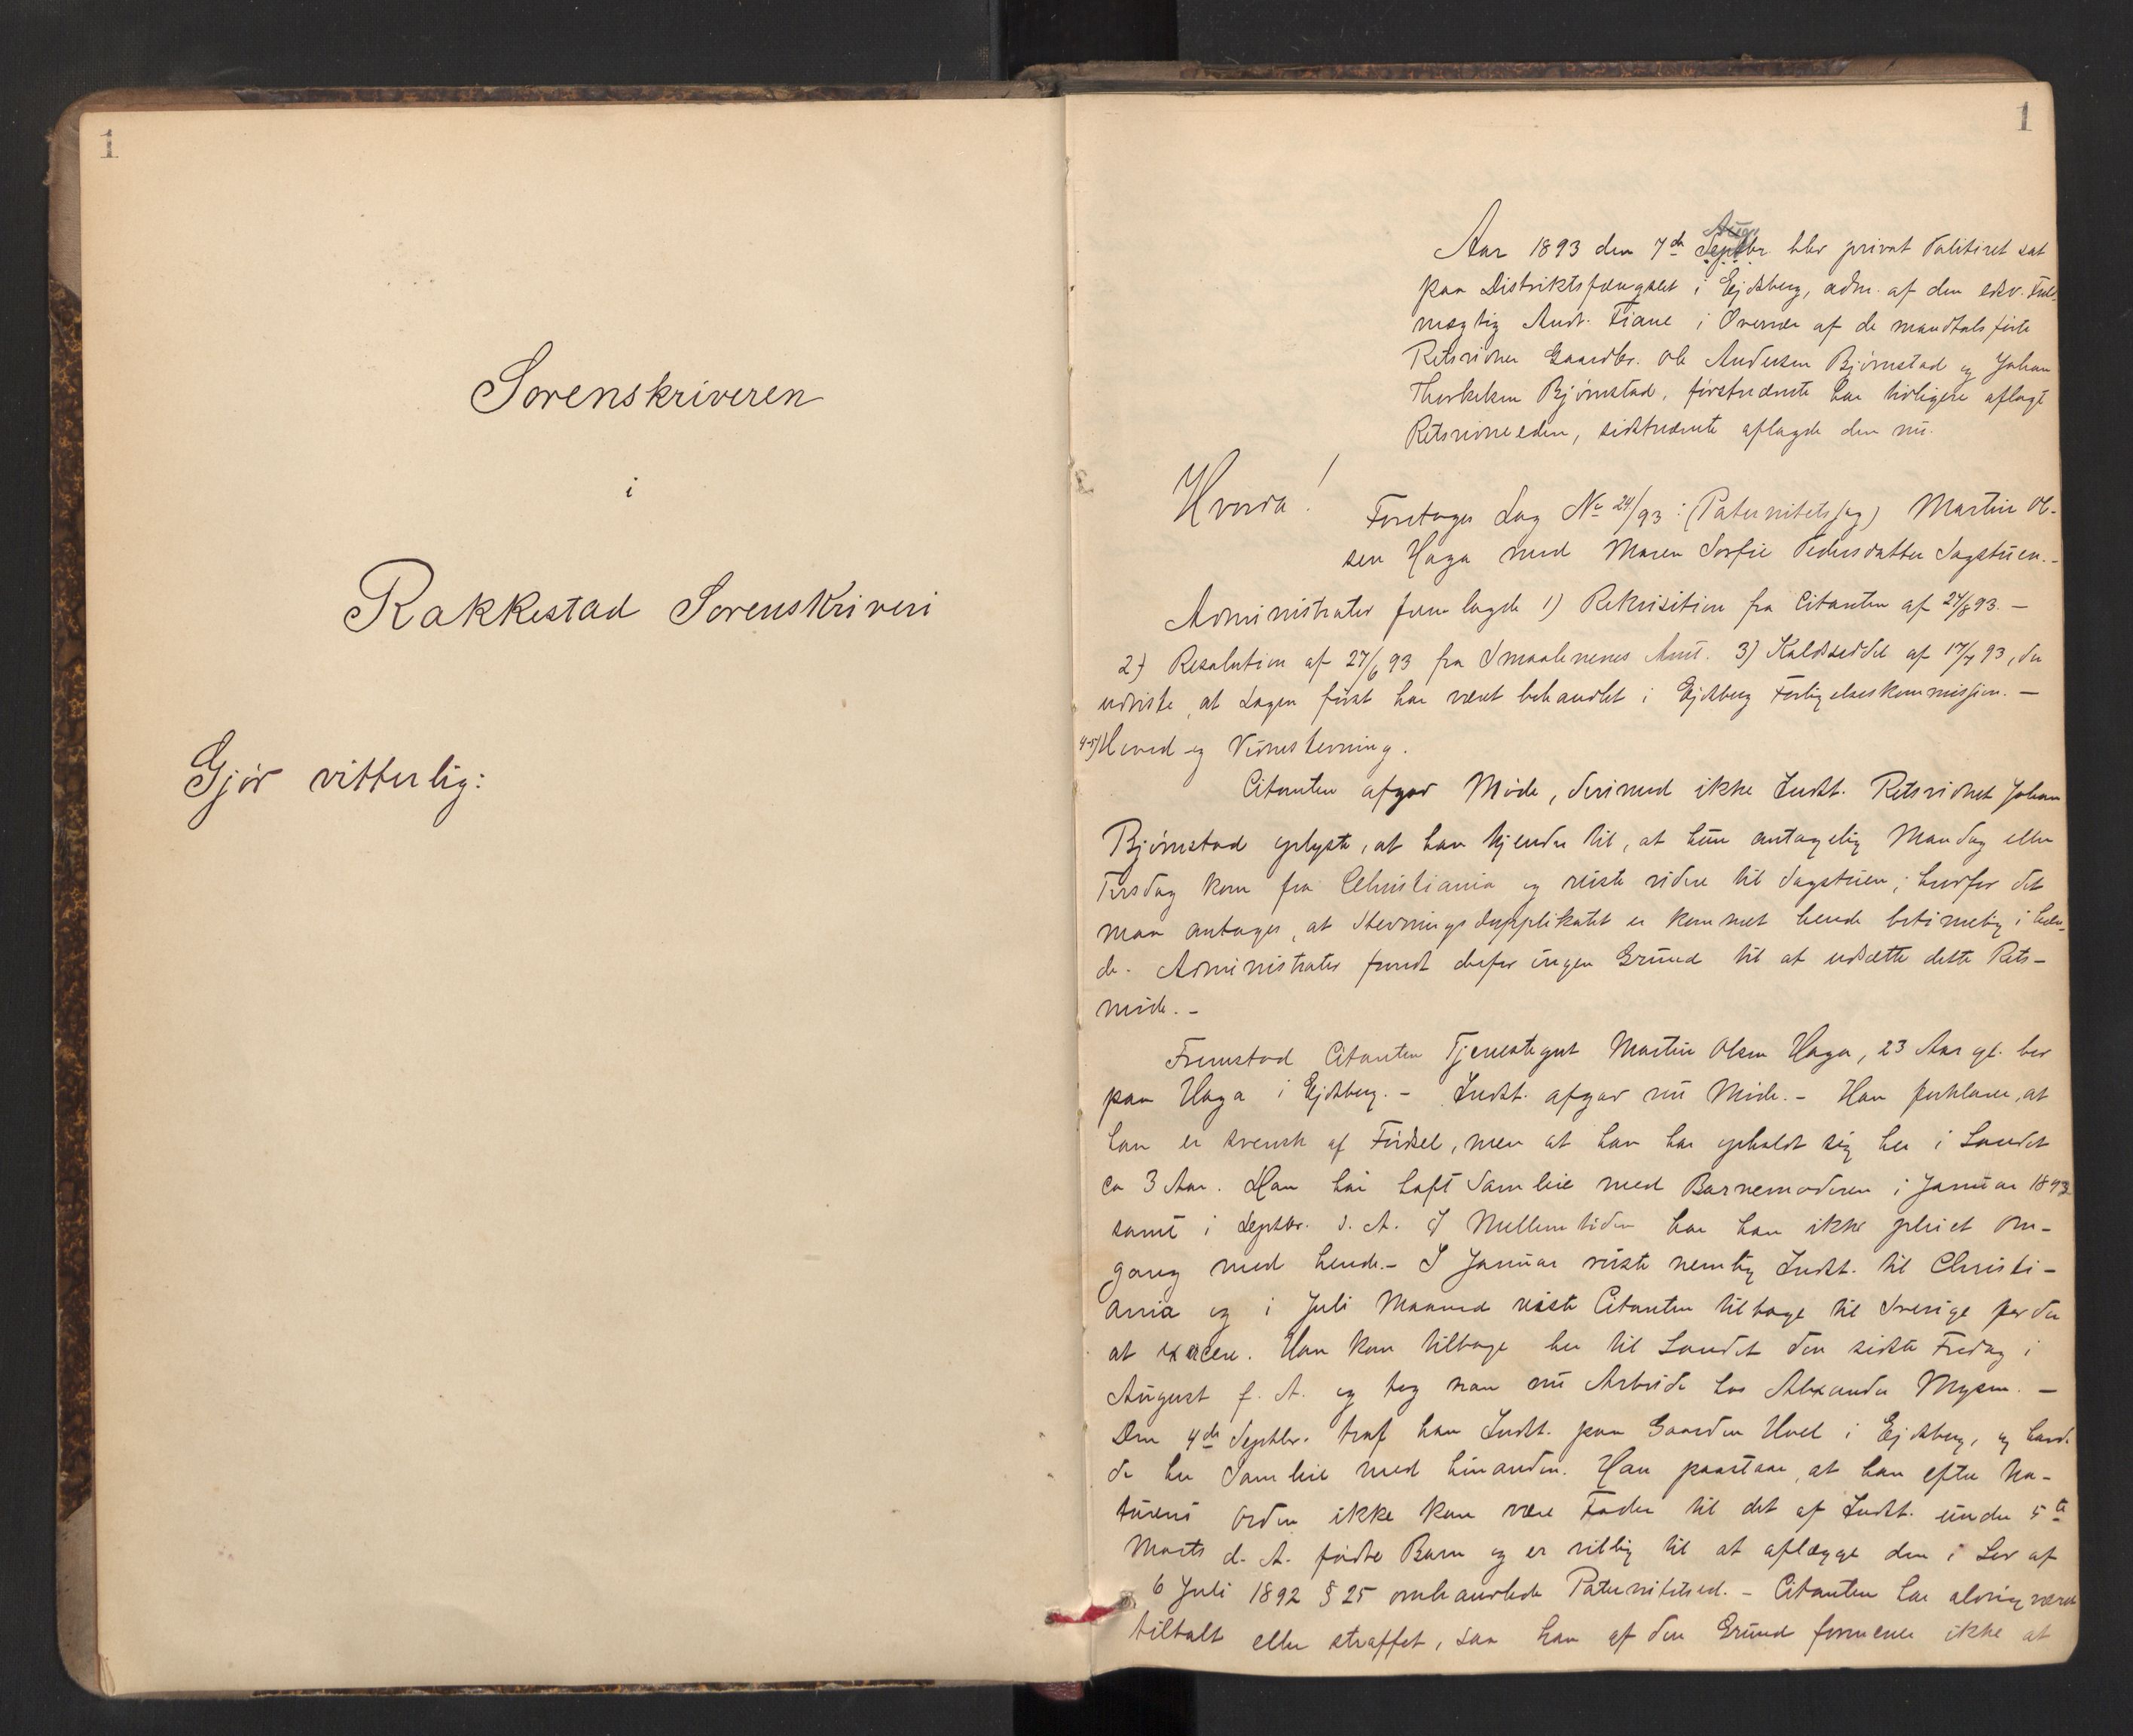 1
Sorenskriveren
i
Rakkestad Sorenskriveri
Gjör vitterlig:
1
Aug.
Aar 1893 den 7de Septbr blev privat Politiret sat
paa Distriktsfængslet i Ejdsberg, adm. af den edsv. Fuld-
mægtig Andr. Fiane i Overvær af de mandtalsførte
Retsvidner Gaardbr. Ole Andersen Bjørnstad og Johan
Thorkelsen Bjørnstad, førstnævnte har tidligere aflagt
Retsvidneeden, sidstnævnte aflagde den nu.
Hvorda!
Foretoges Sag No 24/93: (Paternitetssag) Martin Ol-
sen Haga mod Maren Sofie Pedersdatter Sagstuen.-
Administrator fremlagde 1) Rekvisition fra Citanten af 24/5 93. -
2) Resolution af 27/6 93 fra Smaalenenes Amt. 3) Kaldseddel af 17/7 93, der
udviste, at Sagen først har været behandlet i Ejdsberg Forligelseskommission. -
4-5) Hoved og Vidnestevning.
Citanten afgav Møde, derimod ikke Indst. Retsvidnet Johan
Bjørnstad oplyste, at han kjender til, at hun antagelig Mandag eller
Tirsdag kom fra Christiania og reiste videre til Sagstuen; hvorfor det
maa antages, at Stevningsdupplikatet er kommet hende betimelig i hæn-
de. Administrator fandt derfor ingen Grund til at udsætte dette Rets-
møde. -
Fremstod Citanten Tjenestegut Martin Olsen Haga, 23 Aar gl. bor
paa Haga i Ejdsberg. - Indst. afgav nu Møde. - Han forklarer, at
han er svensk af Fødsel, men at han har opholdt sig her i Landet
ca 3 Aar. Han har haft Samleie med Barnemoderen i Januar 1892
samt i Septbr. s. A. I Mellemtiden har han ikke pleiet Om-
gang med hende. - I Januar reiste nemlig Indst. til Christi-
ania og i Juli Maaned reiste Citanten tilbage til Sverige for der
at exacere. Han kom tilbage her til Landet den sidste Fredag i
August f. A. og tog saa nu Arbeide hos Alexander Mysen. -
Den 4de Septbr. traf han Indst. paa Gaarden Hvel i Ejdsberg, og havd-
de her Samleie med hinanden. Han paastaar, at han efter Na-
turens Orden ikke kan være Fader til det af Indst. under 5te
Marts d. A. fødte Barn og er villig til at aflægge den i Lov af
6 Juli 1892 § 25 omhandlede Paternitetsed. - Citanten har aldrig været
tiltalt eller straffet, saa han af den Grund formener ikke at